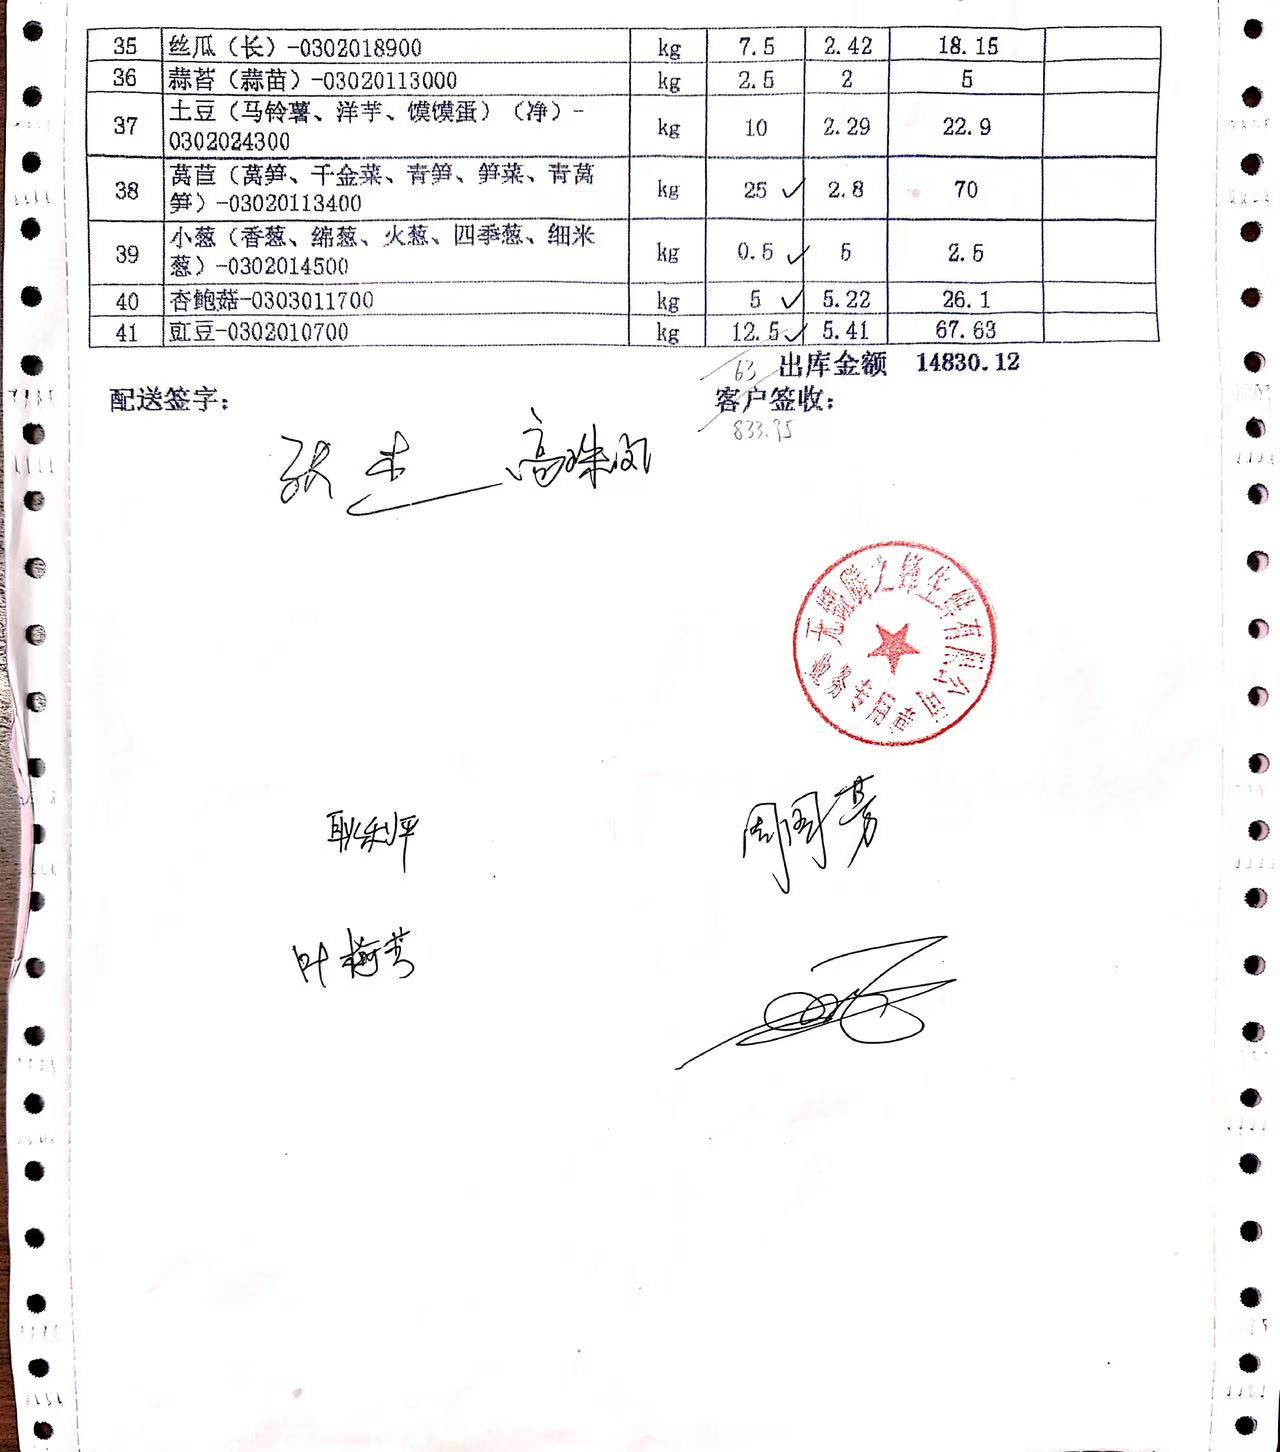 35 丝瓜（长）-0302018900 kg 7.5 2.42 18.15
36 蒜苔（蒜苗）-03020113000 kg 2.5 2 5
37 土豆（马铃薯、洋芋、馍馍蛋）（净）-
0302024300 kg 10 2.29 22.9
38 莴苣（莴笋、千金菜、青笋、笋菜、青莴
笋）-03020113400 kg 25 ✓ 2.8 70
39 小葱（香葱、绵葱、火葱、四季葱、细米
葱）-0302014500 kg 0.5 ✓ 5 2.5
40 杏鲍菇-0303011700 kg 5 ✓ 5.22 26.1
41 豇豆-0302010700 kg 12.5 ✓ 5.41 67.63
63 出库金额 14830.12
配送签字： 客户签收：
833.95
张杰 高珠闵
业务专用章
周国芳
叶梅芳